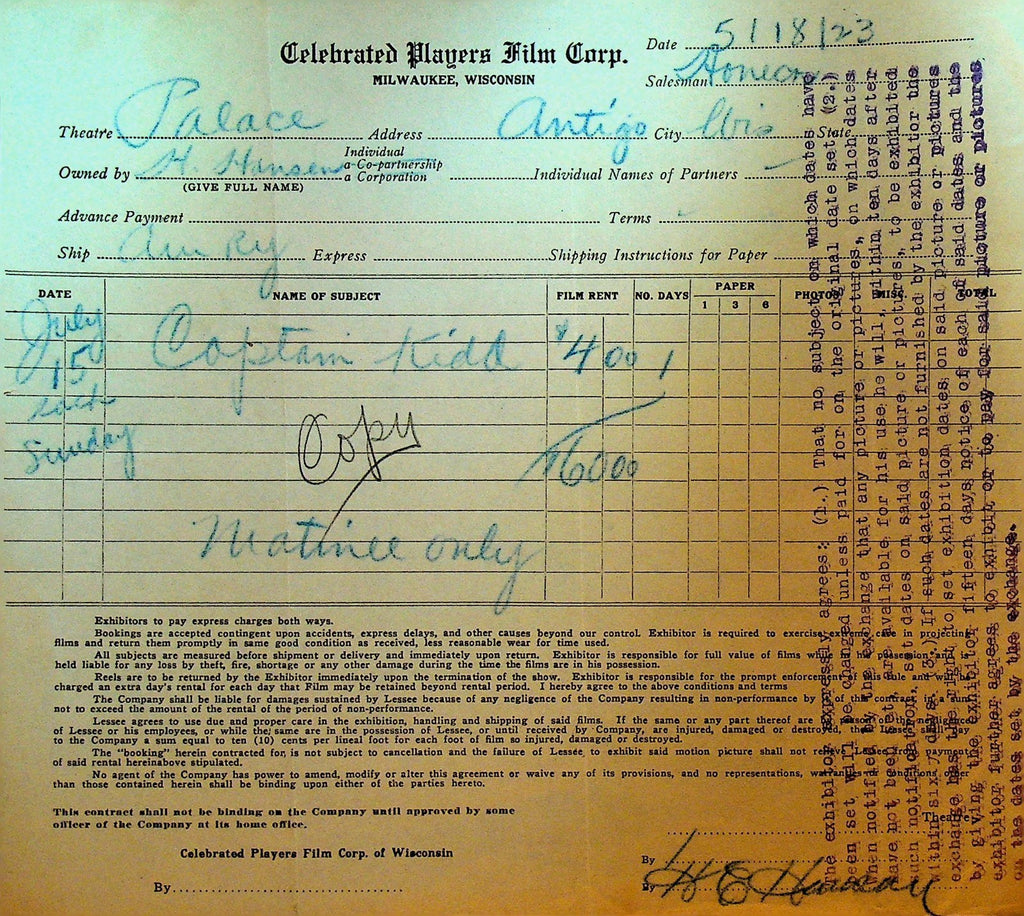 Celebrated Players Film Corp.
MILWAUKEE, WISCONSIN
Date 5/18/23
Salesman
Theatre Palace Address Antigo City Wis State
Owned by H. Hansen Individual
a Co-partnership
a Corporation
Individual Names of Partners
(GIVE FULL NAME)
Advance Payment Terms
Ship Am Ry Express Shipping Instructions for Paper
DATE NAME OF SUBJECT FILM RENT NO. DAYS PAPER PHOTO MISC. TOTAL
1 3 6
July
15 Captain Kidd $4 00 1
each
Sunday
Copy
60 00
Matinee only
Exhibitors to pay express charges both ways.
Bookings are accepted contingent upon accidents, express delays, and other causes beyond our control. Exhibitor is required to exercise extreme care in projecting
films and return them promptly in same good condition as received, less reasonable wear for time used.
All subjects are measured before shipment or delivery and immediately upon return. Exhibitor is responsible for full value of films
held liable for any loss by theft, fire, shortage or any other damage during the time the films are in his possession.
Reels are to be returned by the Exhibitor immediately upon the termination of the show. Exhibitor is responsible for the prompt enforcement of this rule and
charged an extra day's rental for each day that Film may be retained beyond rental period. I hereby agree to the above conditions and terms
The Company shall be liable for damages sustained by Lessee because of any negligence of the Company resulting in non-performance by
not to exceed the amount of the rental of the period of non-performance.
Lessee agrees to use due and proper care in the exhibition, handling and shipping of said films. If the same or any part thereof are
of Lessee or his employees, or while the same are in the possession of Lessee, or until received by Company, are injured, damaged or destroyed, the Lessee
to the Company a sum equal to ten (10) cents per lineal foot for each foot of film so injured, damaged or destroyed.
The "booking" herein contracted for is not subject to cancellation and the failure of Lessee to exhibit said motion picture shall not payment
of said rental hereinabove stipulated.
No agent of the Company has power to amend, modify or alter this agreement or waive any of its provisions, and no representations,
than those contained herein shall be binding upon either of the parties hereto.
This contract shall not be binding on the Company until approved by some
officer of the Company at its home office.
Celebrated Players Film Corp. of Wisconsin
By
Theatre
By
By
The exhibitor expressly agrees: (1.) That no subject on which dates have
been set will be changed unless paid for on the original date set, (2.)
When notified by the exchange that any picture or pictures, on which dates
have not been set, are available for his use, he will, within ten days after
such notification, set dates on said picture or pictures, to be exhibited
within sixty days. (3.) If such dates are not furnished by the exhibitor the
exchange has the right to set exhibition dates on said picture or pictures
by giving the exhibitor fifteen days notice of each of said dates and the
exhibitor further agrees to exhibit or to pay for said picture or pictures
on the dates set by the exchange.